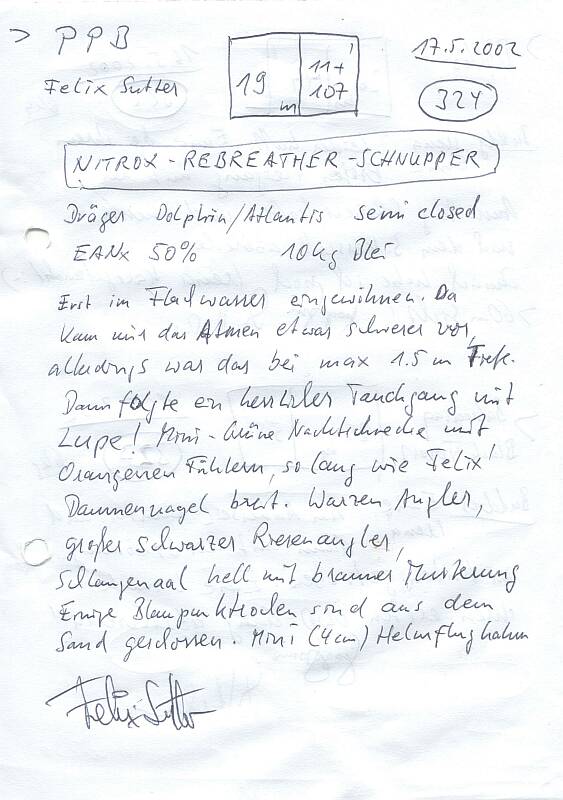 > PPB
17.5.2002
Felix Sutter
19 m
11+
107
324
NITROX-REBREATHER-SCHNUPPER
Dräger Dolphin/Atlantis semi closed
EANx 50% 10 kg Blei
Erst im Flachwasser eingewöhnen. Da
kam mir das Atmen etwas schwerer vor,
allerdings war das bei max 1.5 m Tiefe.
Dann folgte ein herrlicher Tauchgang mit
Lupe! Mini-Grüne Nacktschnecke mit
Orangenen Fühlern, so lang wie Felix'
Daumennagel breit. Warzen Angler,
großer schwarzer Riesenangler,
Schlangenaal hell mit brauner Musterung
Einige Blaupunktrochen sind aus dem
Sand geschossen. Mini (4cm) Helmflughahn
Felix Sutter